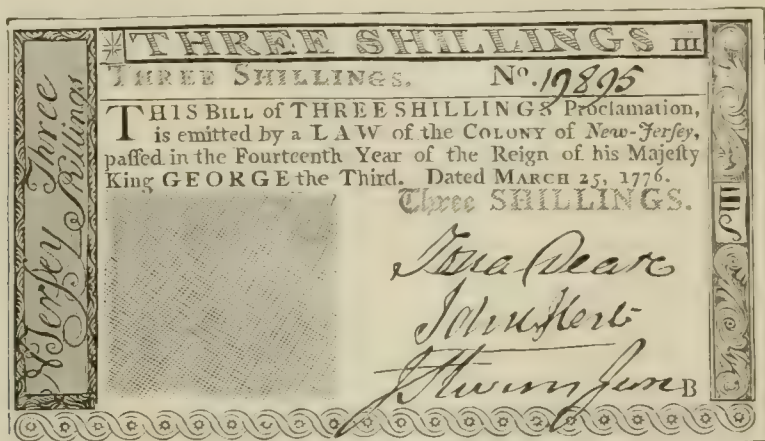 THREE SHILLINGS III
THREE SHILLINGS. No. 19895
THIS BILL of THREE SHILLINGS Proclamation,
is emitted by a LAW of the COLONY of New-Jerſey,
paſſed in the Fourteenth Year of the Reign of his Majeſty
King GEORGE the Third. Dated MARCH 25, 1776.
Three SHILLINGS.
Jona Deare
John
J Stevens Junr B
Jerſey Three
Shillings
IIIS